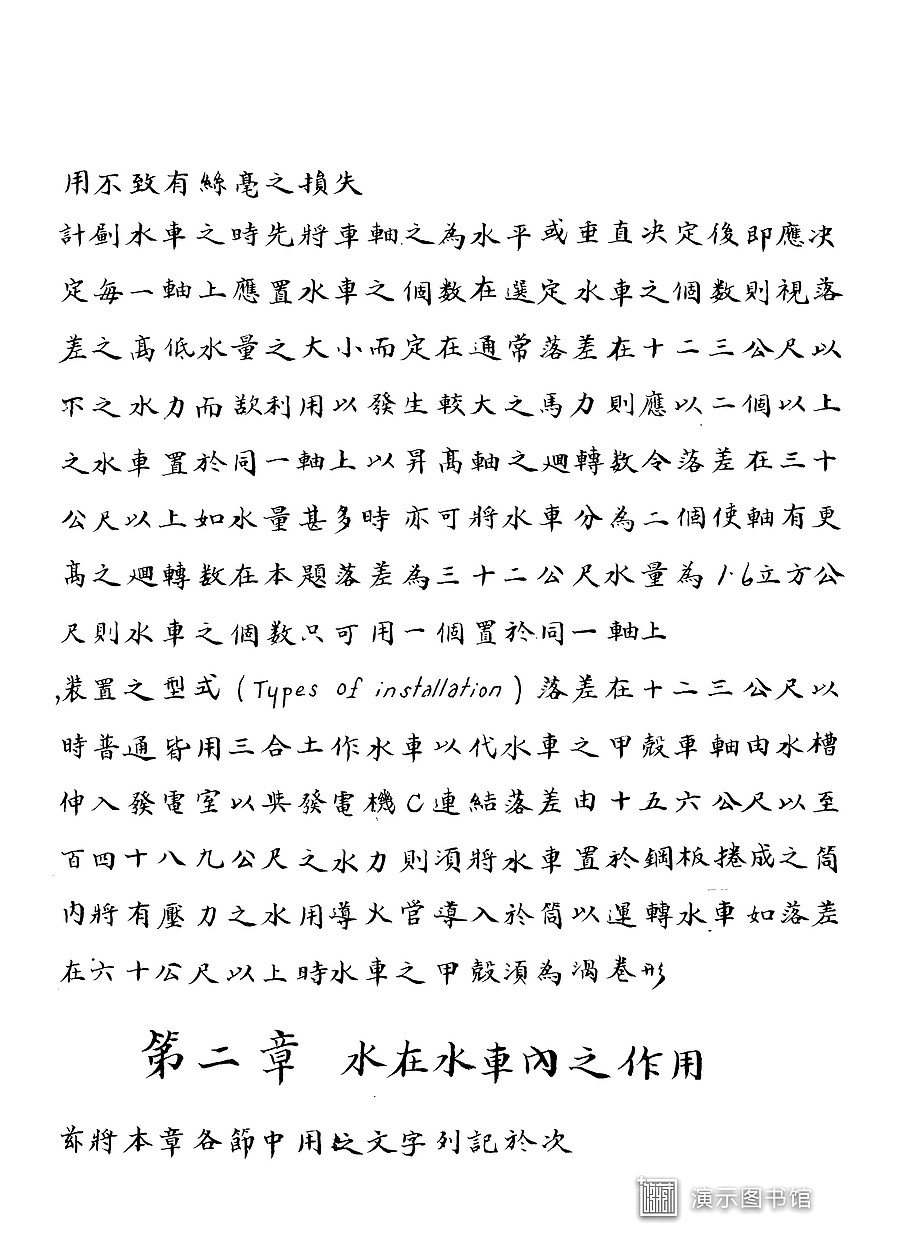 用不致有絲毫之損失
計劃水車之時先將車軸之為水平或重直決定後即應決
定每一軸上應置水車之個數在選定水車之個數則視落
差之高低水量之大小而定在通常落差在十二三公尺以
下之水力而欲利用以發生較大之馬力則應以二個以上
之水車置於同一軸上以昇高軸之迴轉数令落差在三十
公尺以上如水量甚多時亦可將水車分為二個使軸有更
高之迴轉数在本題落差為三十二公尺水量為1.6立方公
尺則水車之個数只可用一個置於同一軸上
裝置之型式(Types of installation)落差在十二三公尺以
時普通皆用三合土作水車以代水車之甲殼車軸由水槽
伸入發電室以與發電機C連結落差由十五六公尺以至
百四十八九公尺之水力則須將水車置於鋼板捲成之筒
內將有壓力之水用導火管導入於筒以運轉水車如落差
在六十公尺以上時水車之甲殼須為渦卷形
第二章 水在水車內之作用
茲將本章各節中用之文字列記於次
演示图书馆